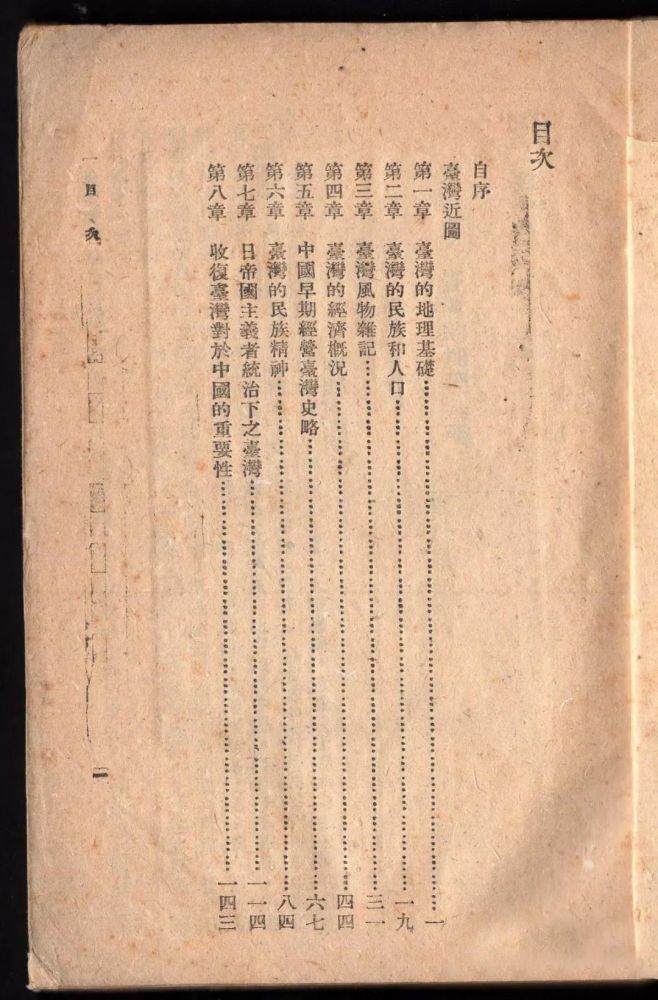 目次
自序
臺灣近圖
第一章 臺灣的地理基礎……一
第二章 臺灣的民族和人口……一九
第三章 臺灣風物雜記……三一
第四章 臺灣的經濟概況……四四
第五章 中國早期經營臺灣史略……六七
第六章 臺灣的民族精神……八四
第七章 日帝國主義者統治下之臺灣……一一四
第八章 收復臺灣對於中國的重要性……一四三
目次